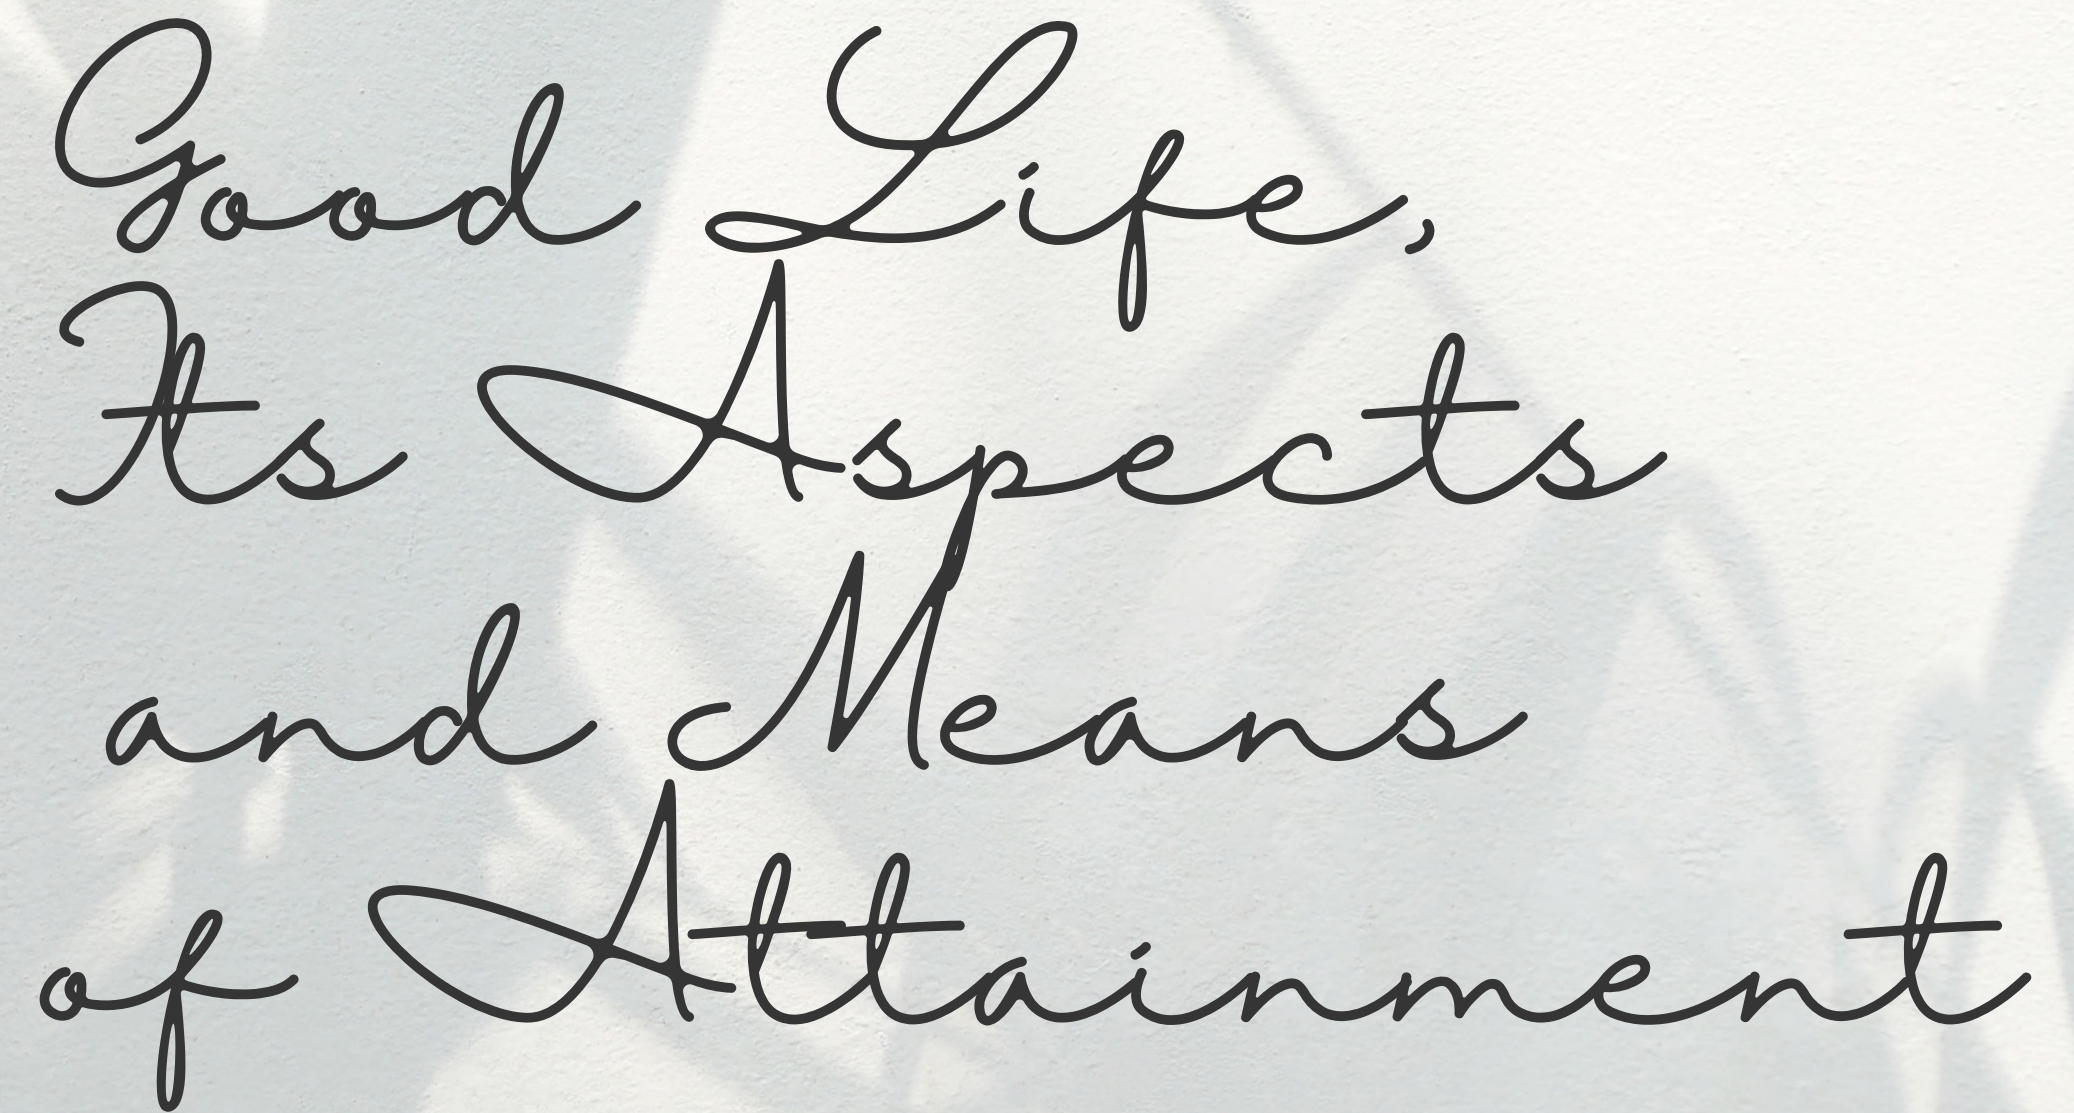 Good Life,
Its Aspects
and Means
of Attainment